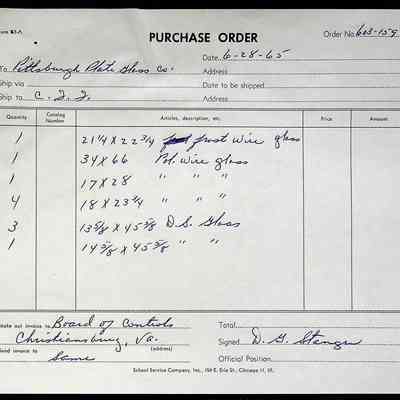 PURCHASE ORDER
Order No. 603-159
Date 6-28-65
To Pittsburgh Plate Glass Co. Address
Ship via Date to be shipped
Ship to Address
Quantity Catalog Number Articles, description, etc. Price Amount
1 21 1/4 X 22 3/4 wire glass
1 34 X 66 Pol. wire glass
1 17 X 28 " " "
4 18 X 23 1/4 " " "
3 13 5/8 X 45 5/8 D.S. Glass
1 14 3/8 X 45 5/8 " "
invoice to Board of Controls Total
Christiansburg, Va. (address) Signed D. G.
invoice to Same Official Position
School Service Company, Inc., E. Erie St., Chicago 11, Ill.